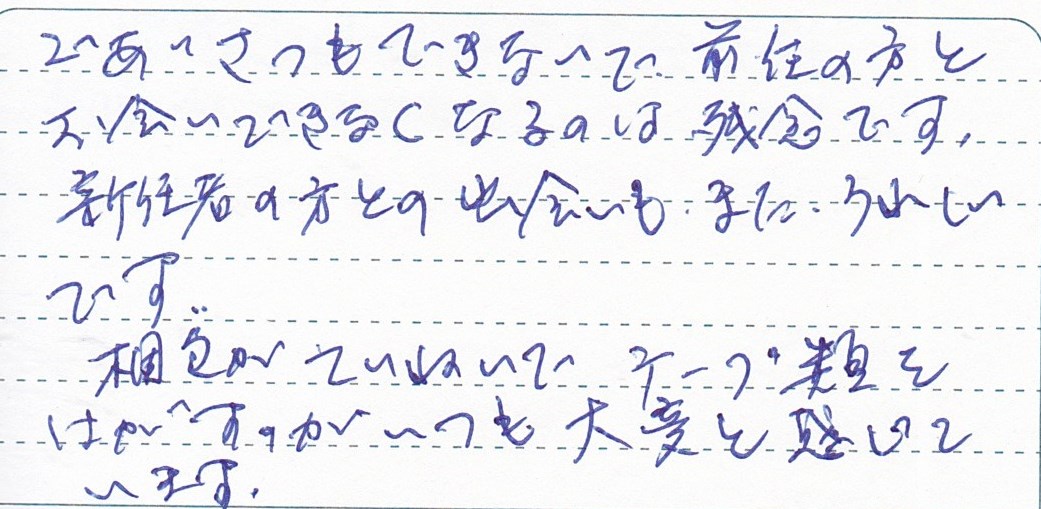 ごあいさつもできないで、前任の方と
お会いできなくなるのは残念です。
新任者の方との出会いも、また、うれしい
です。
梱包がていねいで テープ類を
はがすのがいつも大変と感じて
います。